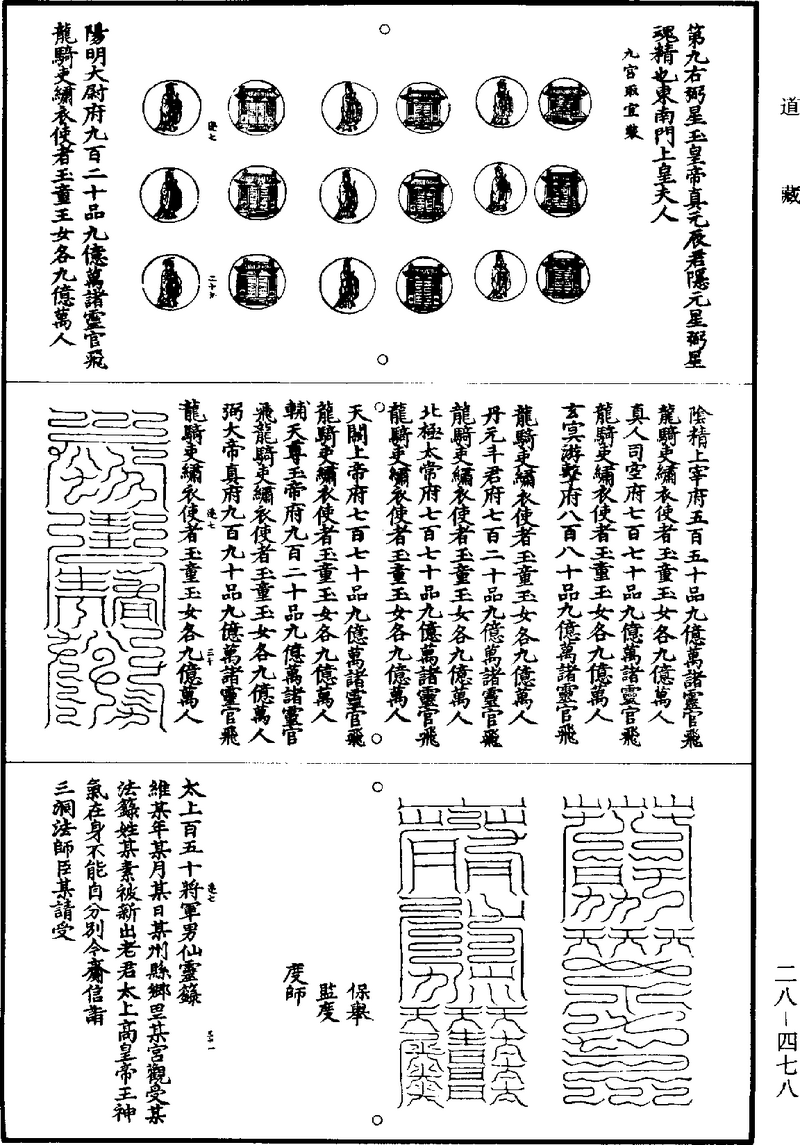 道藏
第九右弼星玉皇帝真元辰君隱元星弼星
魂精也東南門上皇夫人
九宮取宣裝
陽明大尉府九百二十品九億萬諸靈官飛
龍騎吏繡衣使者玉童玉女各九億萬人
陰精上宰府五百五十品九億萬諸靈官飛
龍騎吏繡衣使者玉童玉女各九億萬人
真人司空府七百七十品九億萬諸靈官飛
龍騎吏繡衣使者玉童玉女各九億萬人
玄冥游擊府八百八十品九億萬諸靈官飛
龍騎吏繡衣使者玉童玉女各九億萬人
丹元斗君府七百二十品九億萬諸靈官飛
龍騎吏繡衣使者玉童玉女各九億萬人
北極太常府七百七十品九億萬諸靈官飛
龍騎吏繡衣使者玉童玉女各九億萬人
天關上帝府七百七十品九億萬諸靈官飛
龍騎吏繡衣使者玉童玉女各九億萬人
輔天尊玉帝府九百二十品九億萬諸靈官
飛龍騎吏繡衣使者玉童玉女各九億萬人
弼大帝真府九百九十品九億萬諸靈官飛
龍騎吏繡衣使者玉童玉女各九億萬人
保舉
監度
度師
太上百五十將軍男仙靈籙
維某年某月某日某州縣鄉里某宮觀受某
法籙姓某素被新出老君太上高皇帝王神
氣在身不能自分別今齎信詣
三洞法師臣某請受
二八－四七八